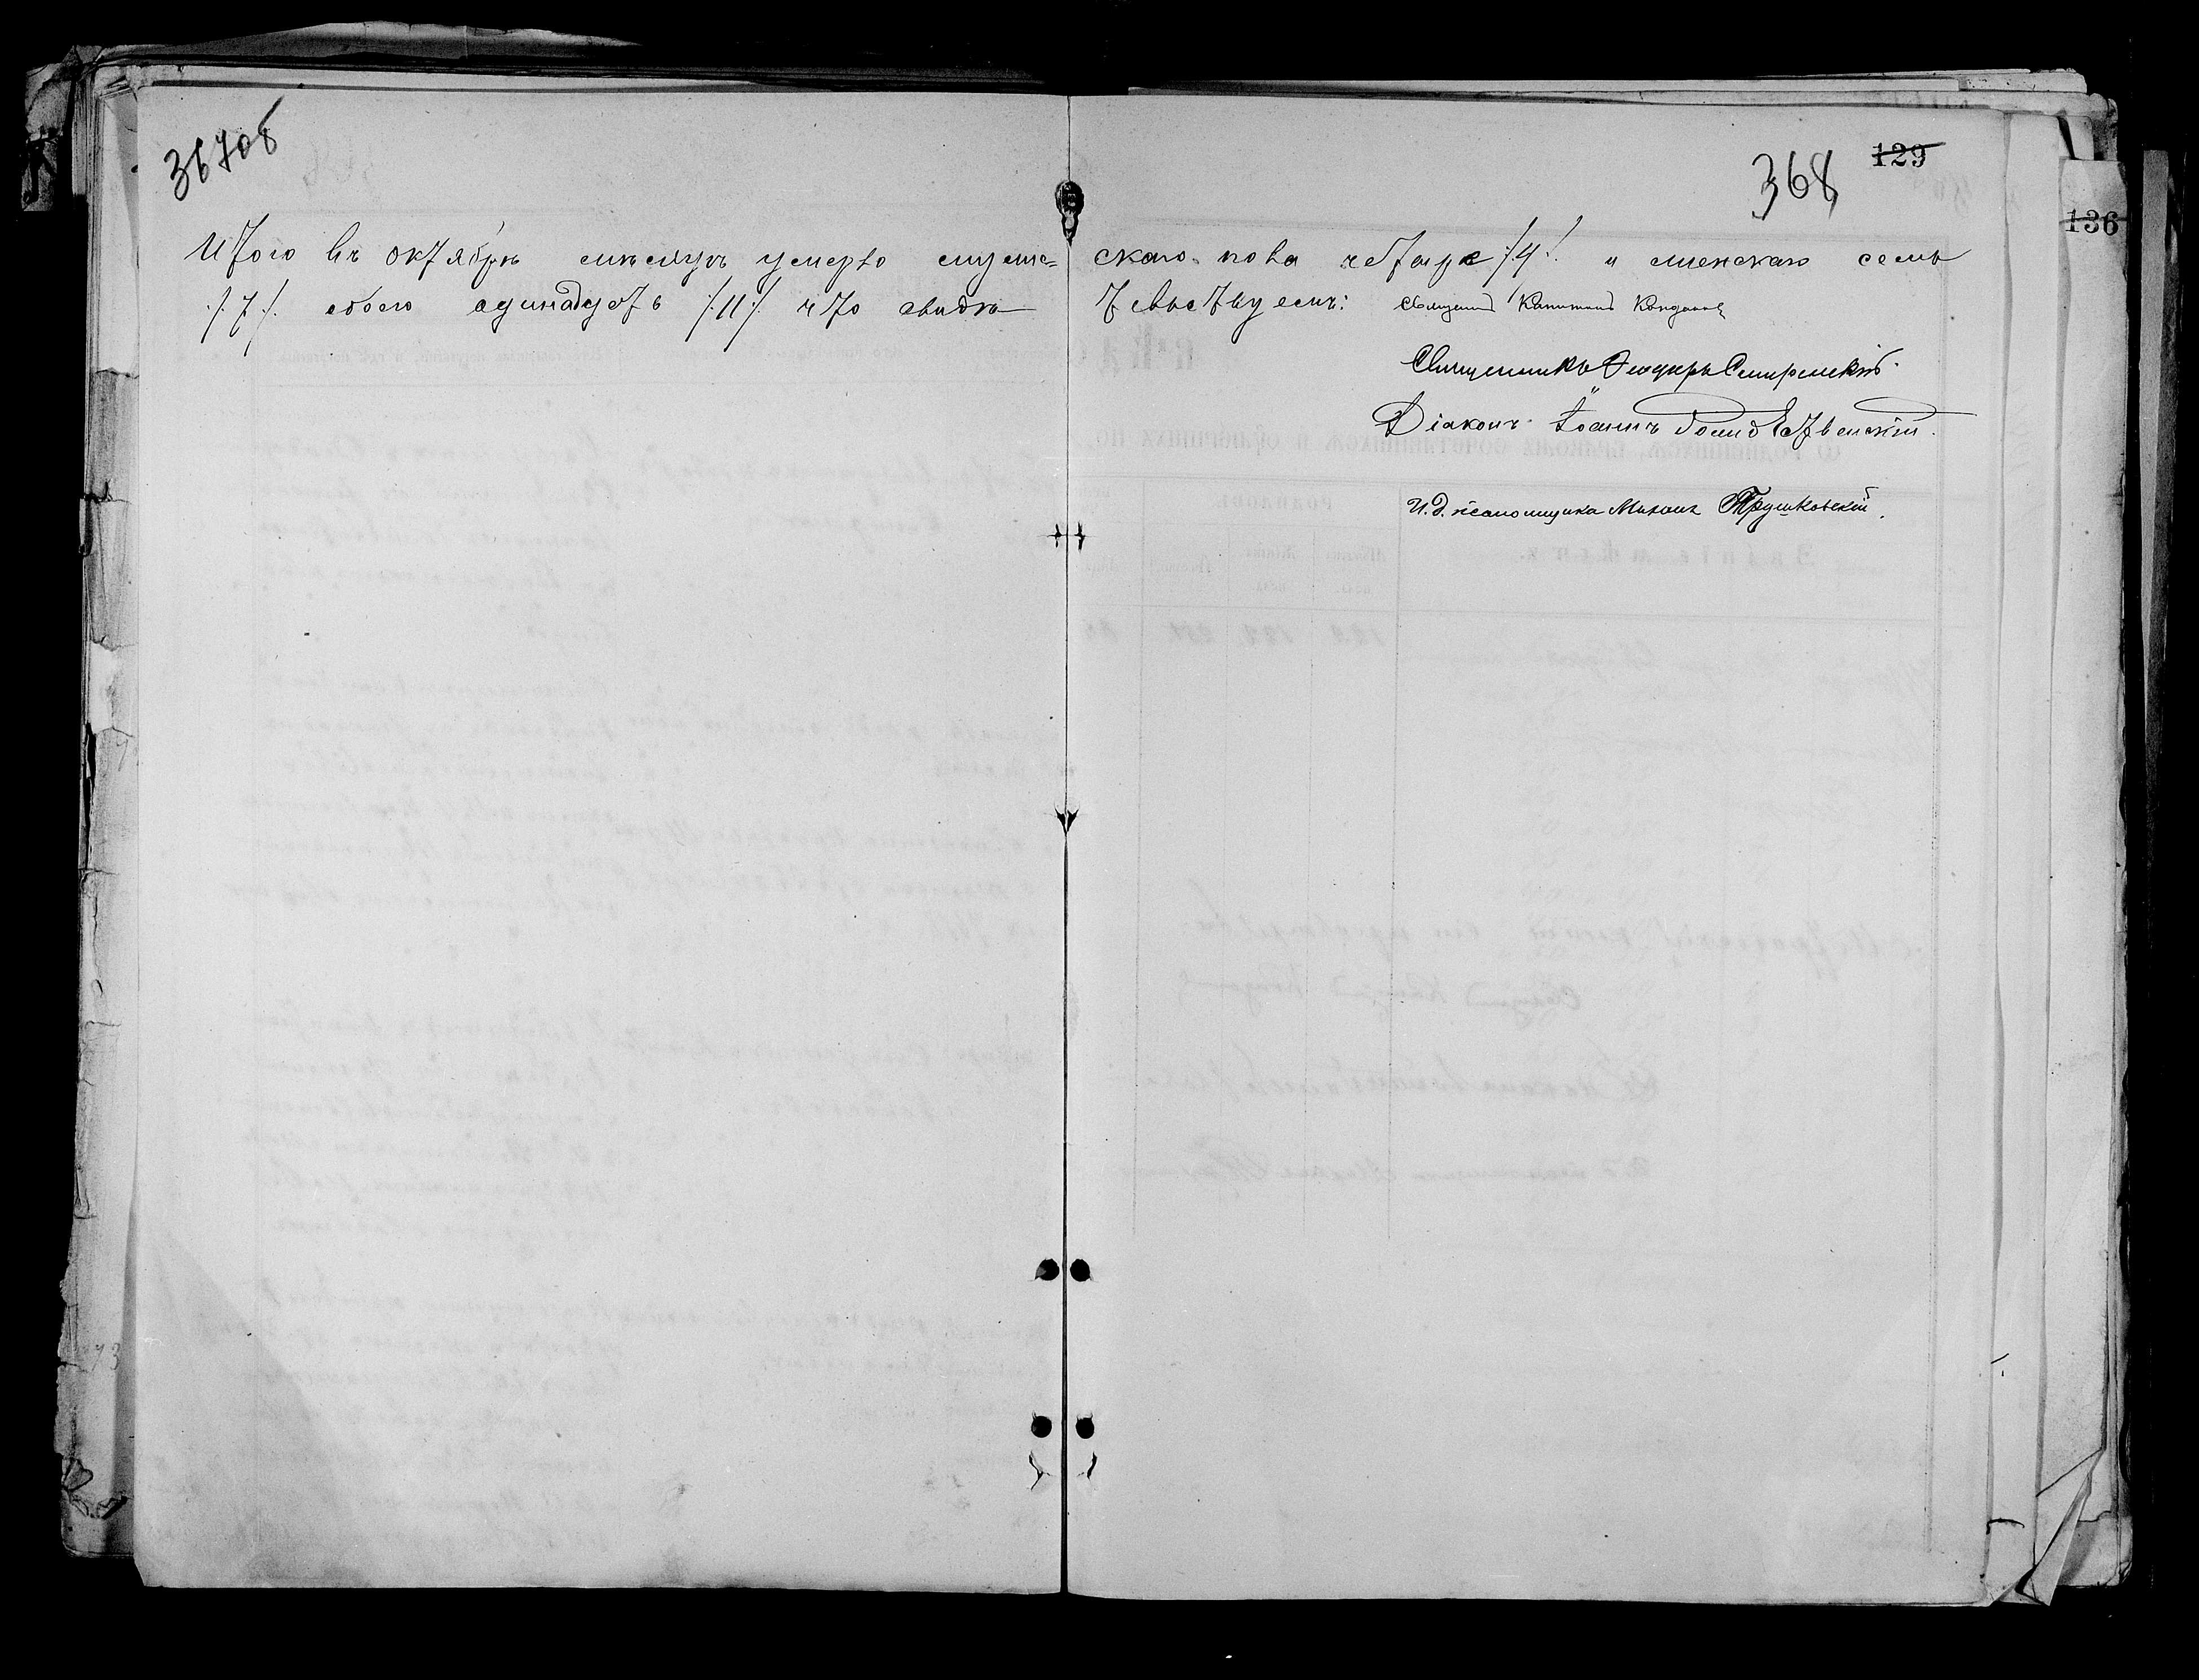 367об
368
129
136
Итого въ октябрѣ мѣсяцѣ умерло муже=скаго пола четыре /4/. и женскаго семь
/.7./. обоего одинадцать /.11./. что свидѣтельствуемъ: Священникъ Капитонъ
Священникъ Ѳеодоръ
Діаконъ Іоаннъ
И. д. псаломщика Михаилъ Трушковскій.